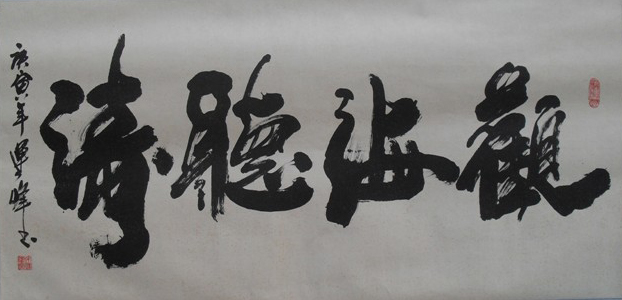 觀海聽濤
庚寅年運峰书